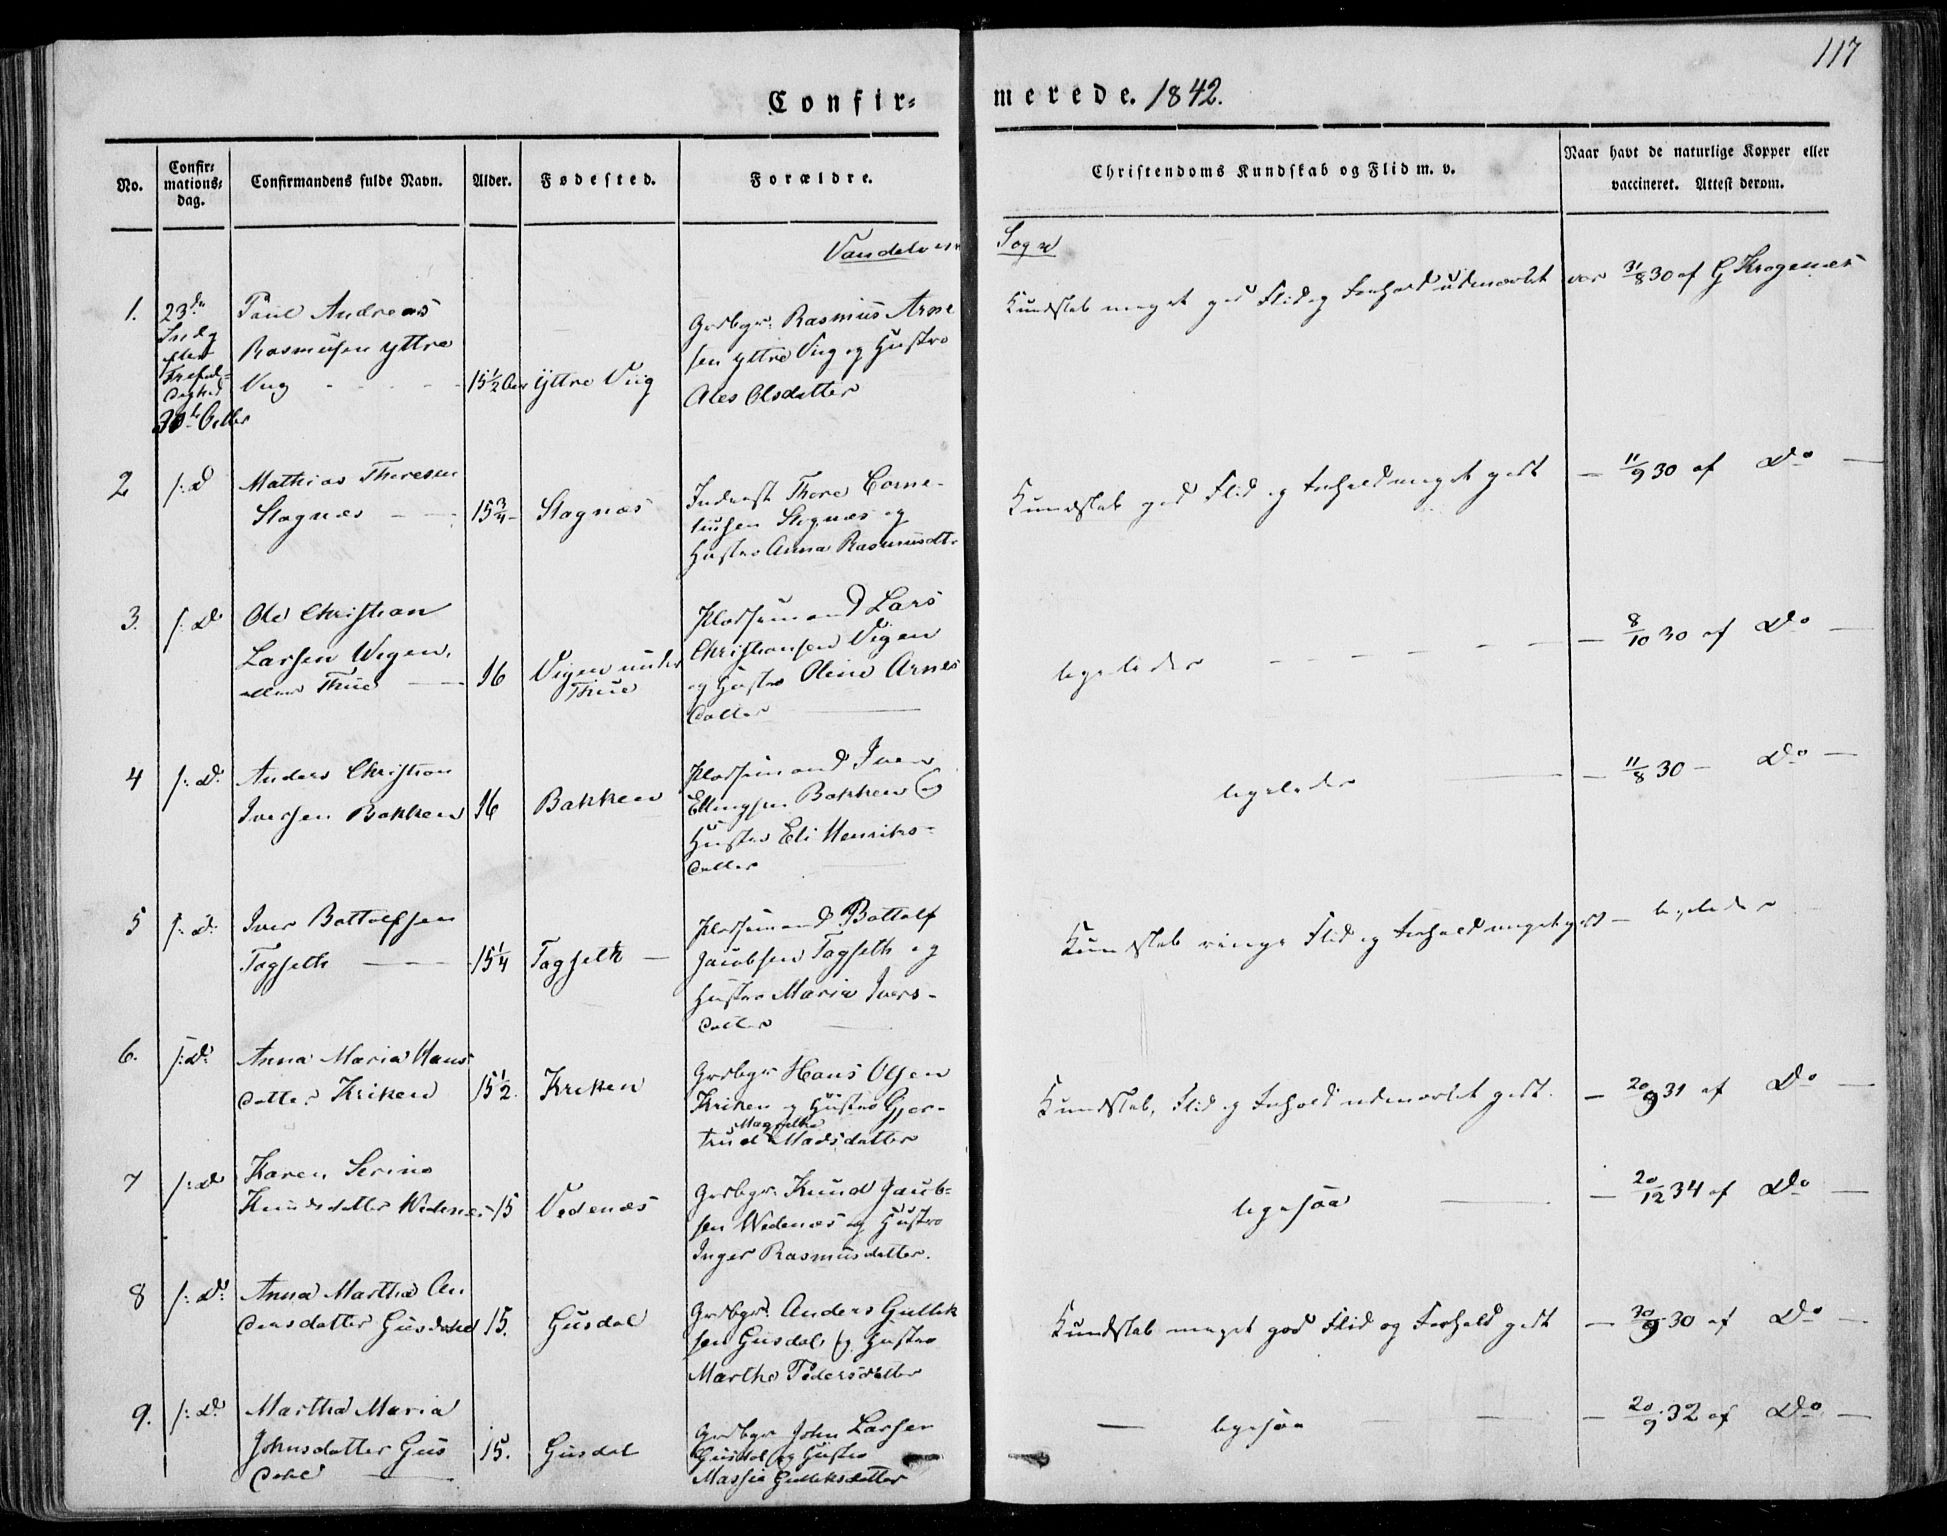 117
Confir= merede. 1842.
No.
Confir=
mations=
dag.
Confirmandens fulde Navn.
Alder.
Fødested.
Forældre.
Christendoms Kundskab og Flid m. v.
Naar havt de naturlige Kopper eller
vaccineret. Attest derom.
Sogn
1.
23de
efter
Trefol=
dighed
30te Octbr
Paul Andreas
Rasmusen yttre
Viig
15 1/2 Aar
Yttre Viig
Grdbgr: Rasmus Arne
sen yttre Viig og Hustro
Ales Olsdatter
Kundskab meget god Flid og Forhold udmærket
vac 31/8 30 af G Krogenæs
2
s: D
Mathias Thoresen
Slagnæs
15 3/4
Slagnæs
Inderst Thore Corne-
liusen Slagnæs og
Hustro Anna Rasmusdtr
Kundskab god Flid og Forhold meget godt
— 11/9 30 af Do —
3.
s: D
Ole Christian
Larsen Wigen
Thue
16
Vigen under
Thue
Pladsemand Lars
Christiansen Vigen
og Hustro Oline Arnes
datter
ligeledes
— 8/10 30 af Do —
4
s: D:
Anders Christian
Iversen Bakken
16
Bakken
Pladsemand Iver
Ellingsen Bakken og
Hustro Eli Henriks-
datter
ligeledes
— 11/8 30 — Do —
5
s: D:
Iver Bottolfsen
Tagseth
15 1/4
Tagseth —
Pladsemand Bottolf
Jacobsen Tagseth og
Hustro Maria Ivers-
datter
Kundskab ringe Flid og Forhold meget godt
— ligeledes
6.
s: D:
Anna Maria Hans
datter Kriken
15 1/2
Kriken
Grdbgr Hans Olsen
Kriken og Hustro Gjer-
Magrethe
trud Madsdatter
Kundskab, Flid og Forhold udmærket godt.
— 20/9 31 af Do —
7
s: D
Karen Serine
Knudsdatter Wedenæs
15
Vedenæs
Grdbgr. Knud Jacob-
sen Wedenæs og Hustro
Inger Rasmusdatter.
ligesaa
— 20/12 34 af Do —
8
s: D:
Anna Martha An
dersdatter Gusdahl
15.
Gusdal
Grdbgr: Anders Gullik
sen Gusdal og Hustro
Marthe Pedersdatter
Kundskab meget god Flid og Forhold godt
— 30/9 30 af Do —
9.
s: D:
Martha Maria
Johnsdatter Gus
dahl
15.
Gusdal
Grdbgr John Larsen
Gusdal og Hustro
Massie Gulliksdatter
— ligesaa
— 20/9 32 af Do —